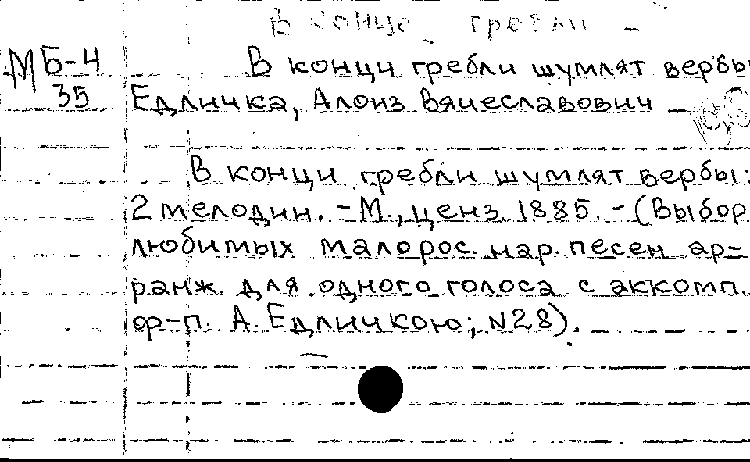 в конце гребли
МБ-4 В конци гребли шумлят вербы
35 Едличка, Алоиз Вячеславович —
В конци гребли шумлят вербы:
2 мелодии. - М., ценз. 1885. - (Выбор
любимых малорос. нар. песен ар-
ранж. для одного голоса с аккомп.
ф-п. А. Едличкою; N28).